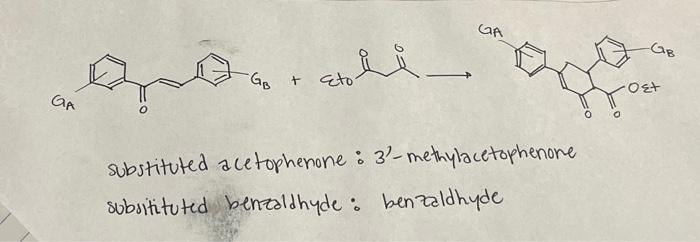 GA
GA
O
GB
+
EtO
O
O
GB
OEt
O
O
substituted acetophenone : 3'-methylacetophenone
subsitituted benzaldhyde : benzaldhyde